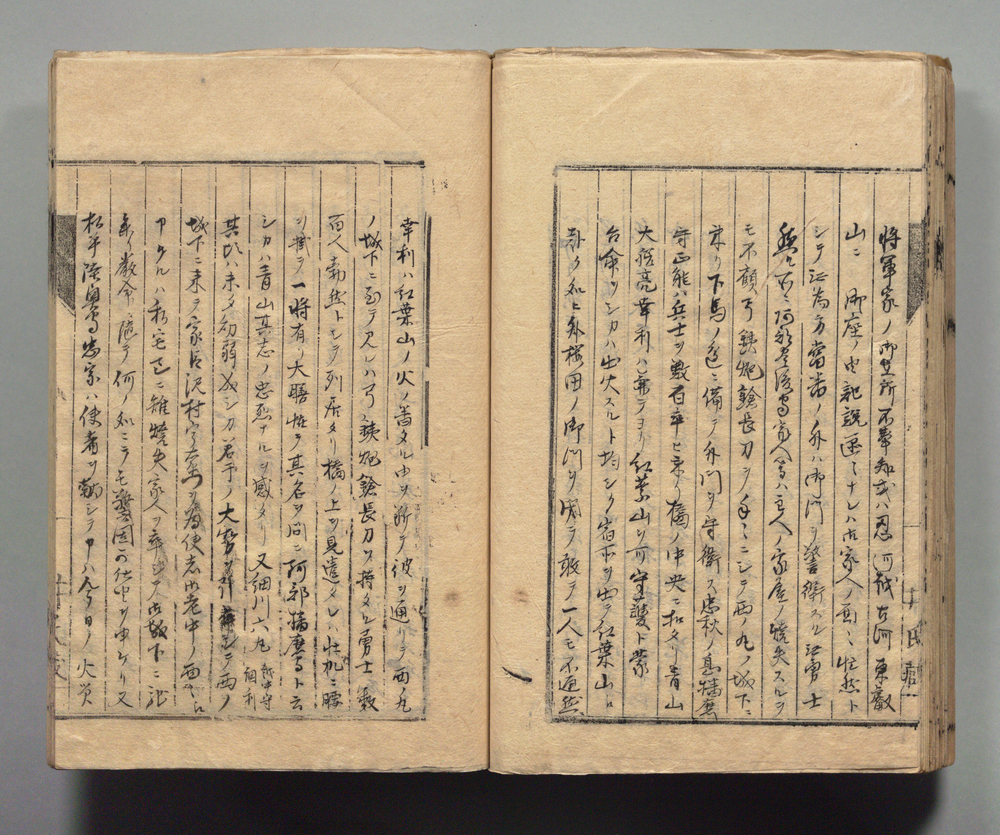 将軍家ノ御座所不奉知或ハ忍河越古河東叡
山ニ御座ノ由記説区ミナレハ御家人ノ面ミ怔然ト
シテ証為方當番ノ外ハ御門ヲ警衛スル江勇士
ニ阿部豊後守家人等ハ主人ノ家屋ノ焼失スルヲ
モ不顧弓鉄炮鎗長刀ヲ手ミニシテ西ノ丸ノ城下ニ
来リ下馬ノ邊ニ備テ外門ヲ守衛ス忠秋ノ息播磨
守正能ハ兵士ヲ数百率ヒ来リ橋ノ中央ニ扣タリ青山
大膳亮幸利ハ兼テヨリ紅葉山ヲ可守護ト蒙
台命ヲシカハ出火スルト均シク宿所ヲ出テ紅葉山ニ
赴ク処ヒ外桜田ノ御門ヲ閉テ敢テ一人モ不通然
幸利ハ紅葉山ノ火ノ當タル由ヲ断テ彼ヲ通リテ西ノ丸
ノ城下ニ至テ見レハ弓鉄炮鎗長刀ヲ持タル勇士数
百人肅然トシテ列居タリ橋ノ上ヲ見遣タレハ床机ニ腰
ヲ掛テ一将有リ大膳怪テ其名ヲ問ニ阿部播磨守ト云
シカハ青山其志ノ忠烈ナルヲ感タリ又細川六丸越中守綱利
其頃ハ未タ幼弱ナリシカ若干ノ大勢ヲ引卒シテ西ノ
城下ニ来テ家臣沢村宇右衛門ヲ為使者御老中ノ面ミニ
申ケルハ私宅已ニ雖焼失家人ヲ率テ御城下ニ
来リ嚴命ニ随テ何ノ処ニテモ警固可仕由ヲ申ケリ又
松平陸奥守忠宗ハ使者ヲ馳シテ申ハ今日ノ火災